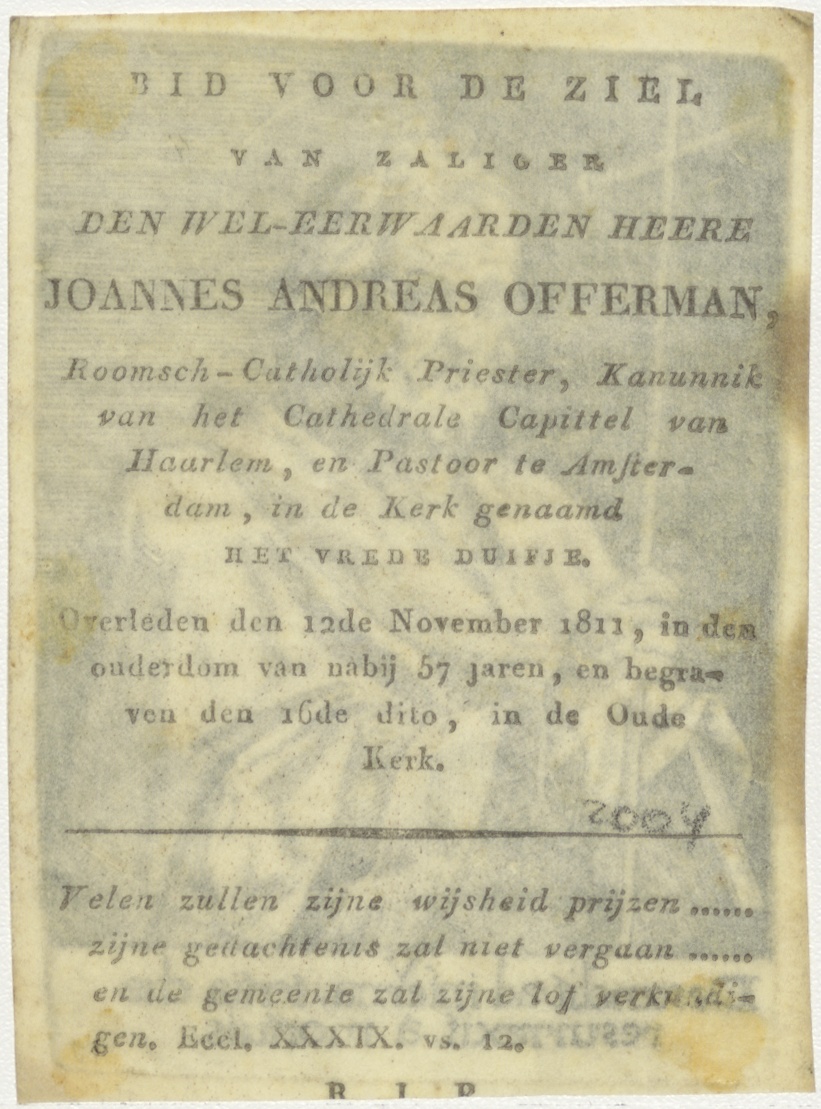 BID VOOR DE ZIEL
VAN ZALIGER
DEN WEL-EERWAARDEN HEERE
JOANNES ANDREAS OFFERMAN,
Roomsch-Catholijk Priester, Kanunnik
van het Cathedrale Capittel van
Haarlem, en Pastoor te Amſter-
dam, in de Kerk genaamd
HET VREDE DUIFJE.
Overleden den 12de November 1811, in den
ouderdom van nabij 57 jaren, en begra-
ven den 16de dito, in de Oude
Kerk.
2004
Velen zullen zijne wijsheid prijzen ......
zijne gedachtenis zal niet vergaan ......
en de gemeente zal zijne lof verkundi-
gen. Eccl. XXXIX. vs. 12.
R I P